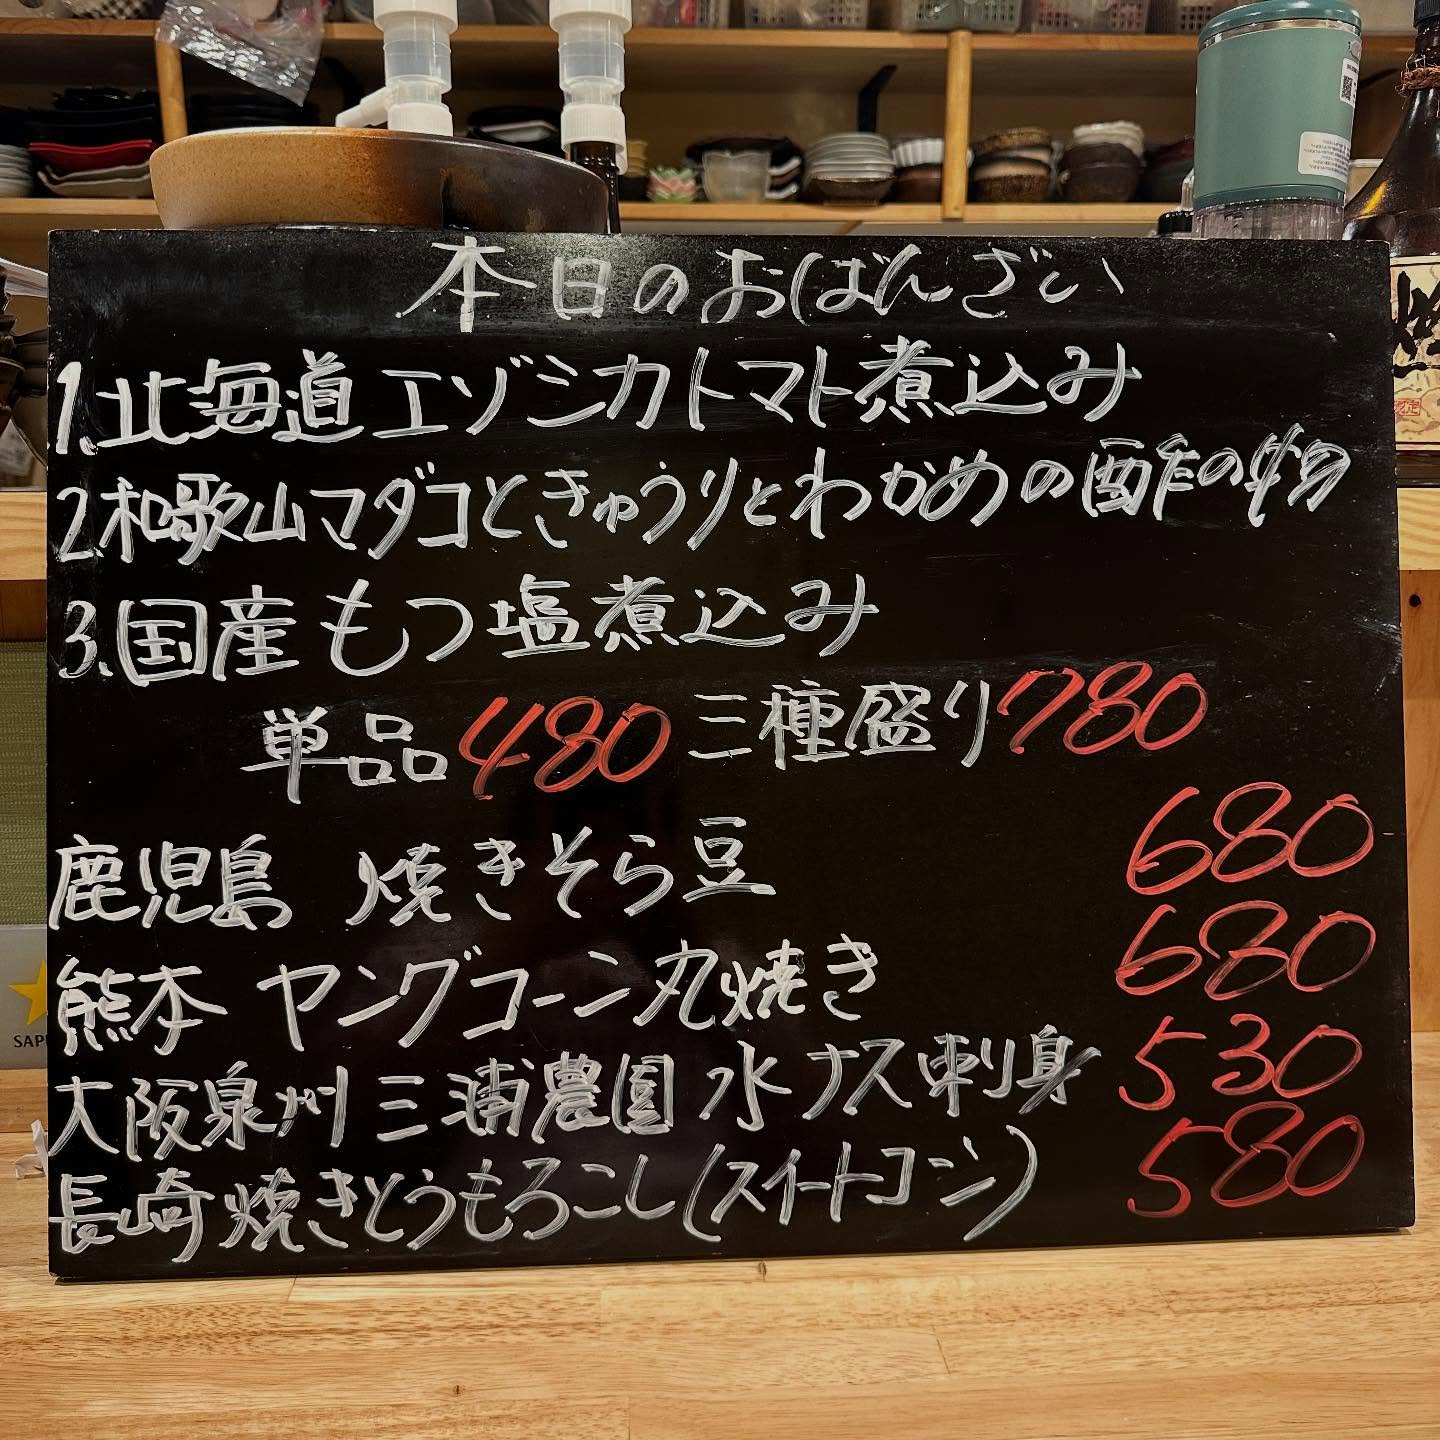 本日のおばんざい
1.北海道エゾシカトマト煮込み
2.和歌山マダコときゅうりとわかめの酢の物
3.国産もつ塩煮込み
単品480 三種盛り780
鹿児島 焼きそら豆 680
熊本 ヤングコーン丸焼き 680
大阪泉州 三浦農園 水ナス刺身 530
長崎 焼きとうもろこし(スイートコーン) 580